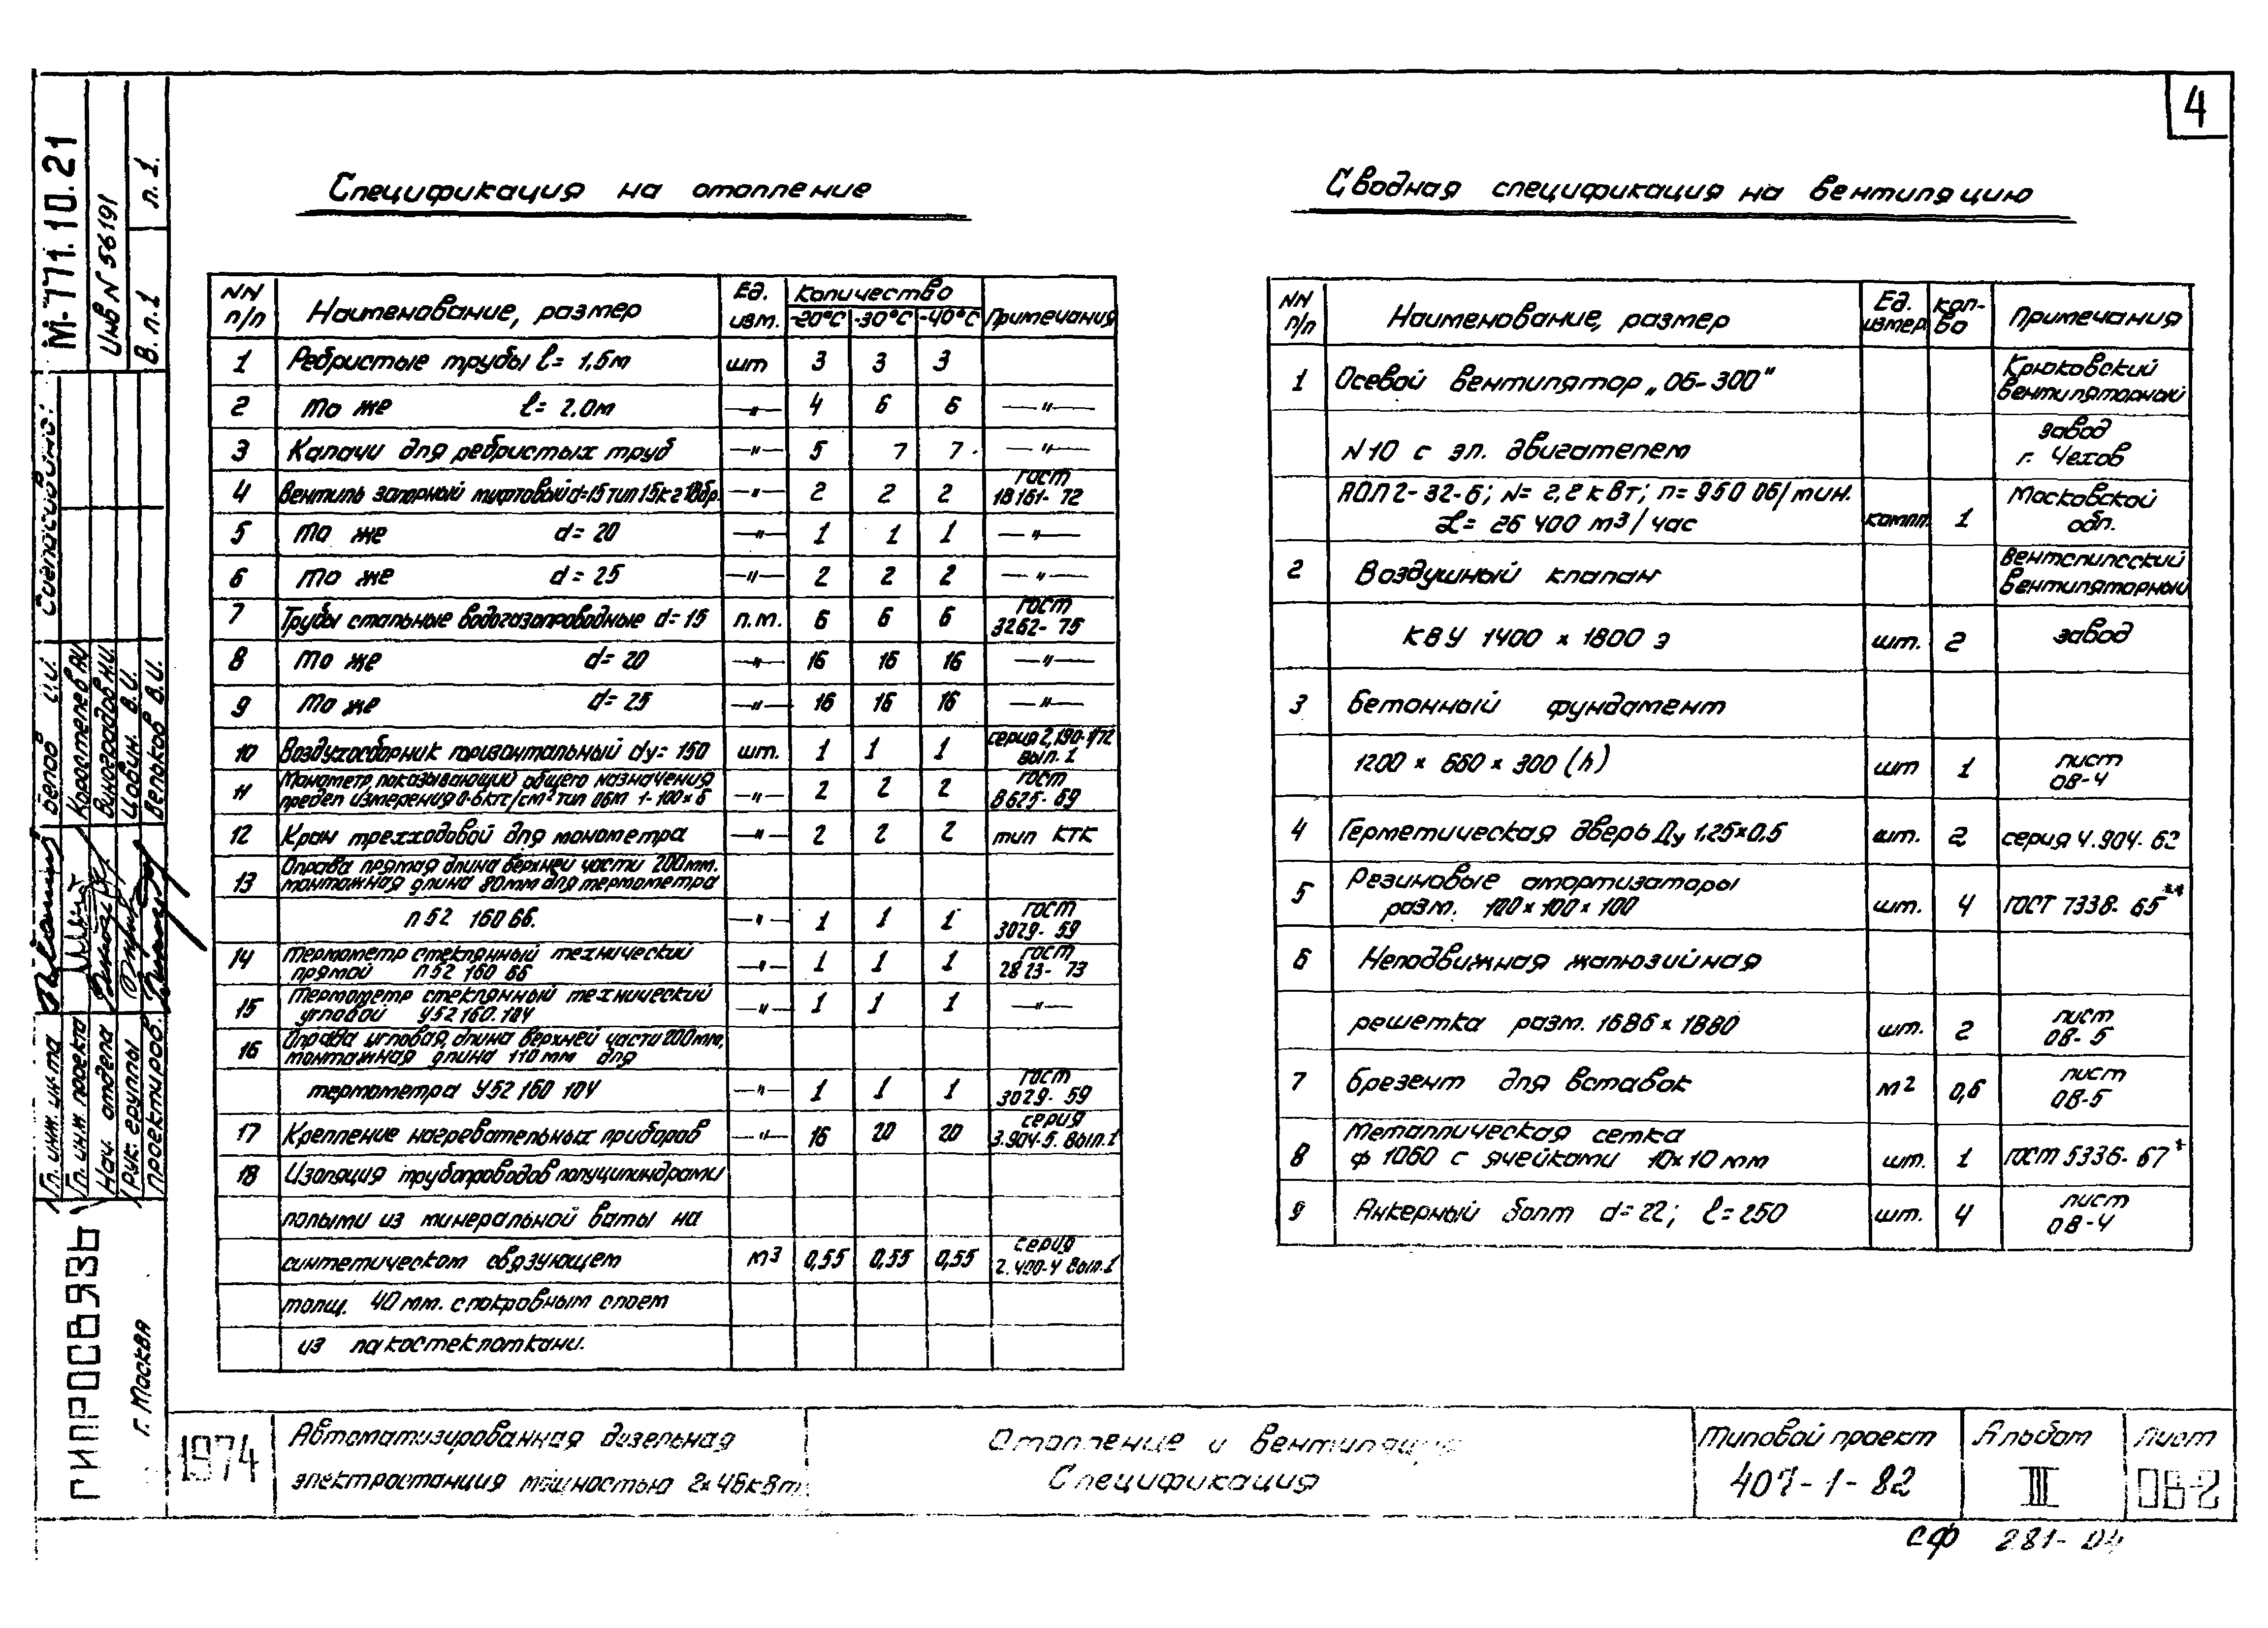 4
М-771.10.21
Инв N 56191
В.л.1 л.1.
Согласовано:
Гл. инж. ин-та Белов И.И.
Гл. инж. проекта Коростелев
Нач. отдела Виноградов Н.И.
Рук. группы Цовин. В.И.
Проектиров. Вельков В.И.
ГИПРОСВЯЗЬ
г. Москва
Спецификация на отопление
NN п/п Наименование, размер Ед. изм. Количество -20°С -30°С -40°С Примечания
1 Ребристые трубы ℓ= 1,5м шт 3 3 3
2 То же ℓ= 2.0м —"— 4 6 6 —"—
3 Калачи для ребристых труб —"— 5 7 7 —"—
4 Вентиль запорный муфтовый d=15 тип 15кг18бр. —"— 2 2 2 ГОСТ 18161-72
5 То же d= 20 —"— 1 1 1 —"—
6 То же d= 25 —"— 2 2 2 —"—
7 Трубы стальные водогазопроводные d= 15 п.м. 6 6 6 ГОСТ 3262-75
8 То же d= 20 —"— 16 16 16 —"—
9 То же d= 25 —"— 16 16 16 —"—
10 Воздухосборник горизонтальный dу= 150 шт. 1 1 1 серия 2,190-1/72 вып. 1
11 Манометр показывающий общего назначения
предел измерения 0-6кгс/см² тип ОБМ 1-100×6 —"— 2 2 2 ГОСТ 8625-69
12 Кран трехходовой для монометра —"— 2 2 2 тип КТК
13 Оправа прямая длина верхней части 200мм.
монтажная длина 80мм для термометра
П 52 160 66. —"— 1 1 1 ГОСТ 3029-59
14 Термометр стеклянный технический
прямой П 52 160 66 —"— 1 1 1 ГОСТ 2823-73
15 Термометр стеклянный технический
угловой У52 160.104 —"— 1 1 1 —"—
16 Оправа угловая, длина верхней части 200мм,
монтажная длина 110мм для
термометра У52 160 104 —"— 1 1 1 ГОСТ 3029-59
17 Крепление нагревательных приборов —"— 16 20 20 серия 3.904-5. Вып.1
18 Изоляция трубопроводов полуцилиндрами
полыми из минеральной ваты на
синтетическом связующем м3 0,55 0,55 0,55 серия 2.400-4 Вып.1
толщ. 40мм. с покровным слоем
из лакостеклоткани.
Сводная спецификация на вентиляцию
NN п/п Наименование, размер Ед. измер. кол-во Примечания
1 Осевой вентилятор „06-300" Крюковский Вентиляторный
N10 с эл. двигателем завод г. Чехов
АОЛ2-32-6; N= 2,2 кВт; n= 950 об/мин.
L= 26 400 м3/час компл. 1 Московской обл.
2 Воздушный клапан Вентспилсский Вентиляторный
КВУ 1400 × 1800 э шт. 2 завод
3 Бетонный фундамент
1200 × 660 × 300 (h) шт 1 лист ОВ-4
4 Герметическая дверь Ду 1.25×0.5 шт. 2 серия 4.904-62
5 Резиновые амортизаторы
разм. 100×100×100 шт. 4 ГОСТ 7338-65**
6 Неподвижная жалюзийная
решетка разм. 1686×1880 шт. 2 лист ОВ-5
7 Брезент для вставок м2 0,6 лист ОВ-5
8 Металлическая сетка
ф 1060 с ячейками 10×10 мм шт. 1 ГОСТ 5336-67*
9 Анкерный болт d= 22; ℓ= 250 шт. 4 лист ОВ-4
1974
Автоматизированная дизельная
электростанция мощностью 2×48кВт
Отопление и вентиляция
Спецификация
Типовой проект
407-1-82
Альбом
III
Лист
ОВ-2
сф 281-04